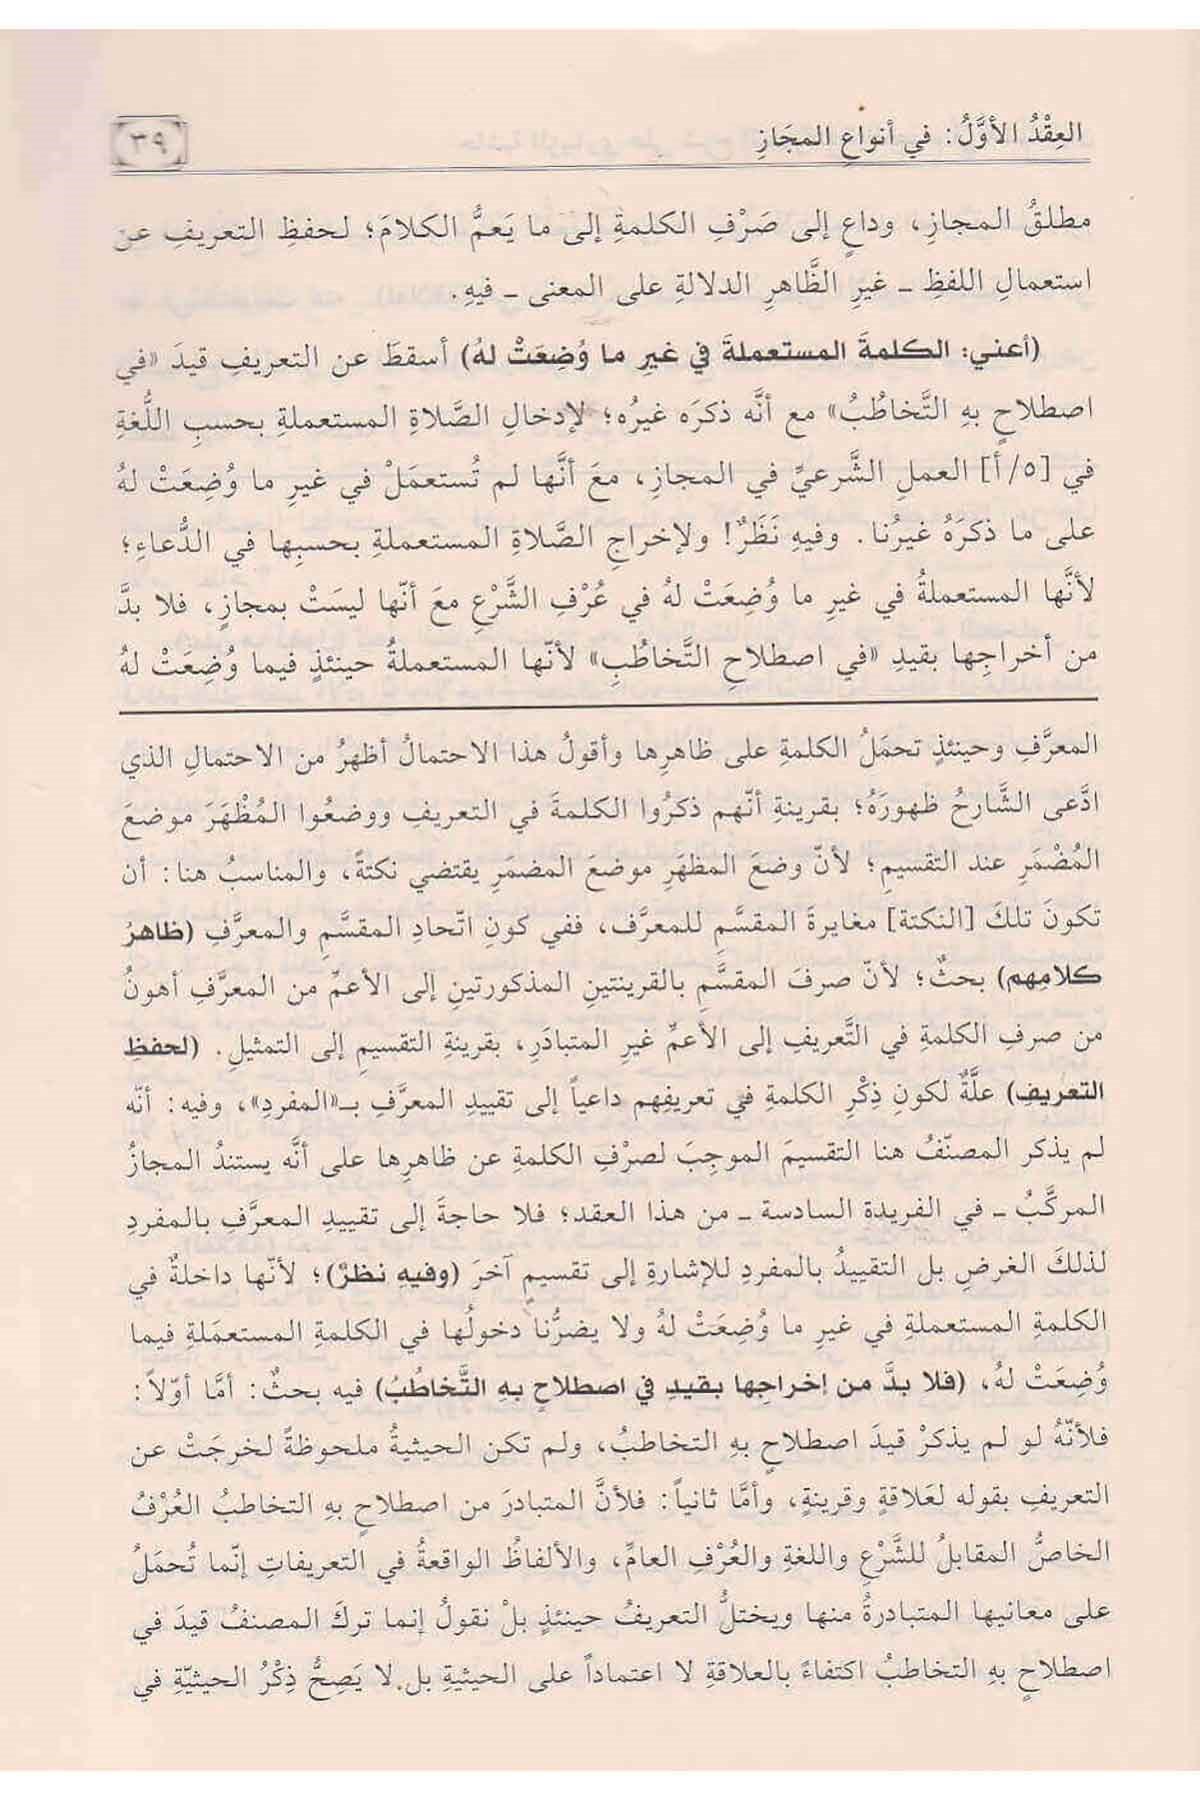 العِقْدُ الأوَّلُ: في أنواعِ المجَازِ
٣٩
مطلقُ المجازِ، وداعٍ إلى صَرْفِ الكلمةِ إلى ما يَعمُّ الكلامَ؛ لحفظِ التعريفِ عن
استعمالِ اللفظِ ـ غيرِ الظَّاهرِ الدلالةِ على المعنى ـ فيهِ.
(أعني: الكلمةَ المستعملةَ في غيرِ ما وُضِعَتْ لهُ) أسقطَ عن التعريفِ قيدَ «في
اصطلاحٍ بهِ التَّخاطُبُ» مع أنَّه ذكرَه غيرُه؛ لإدخالِ الصَّلاةِ المستعملةِ بحسبِ اللُّغةِ
في [٥/أ] العملِ الشَّرعيِّ في المجازِ، معَ أنَّها لم تُستعمَلْ في غيرِ ما وُضِعَتْ لهُ
على ما ذكرَهُ غيرُنا. وفيهِ نَظَرٌ! ولإخراجِ الصَّلاةِ المستعملةِ بحسبِها في الدُّعاءِ؛
لأنَّها المستعملةُ في غيرِ ما وُضِعَتْ لهُ في عُرْفِ الشَّرْعِ معَ أنّها ليسَتْ بمجازٍ، فلا بدَّ
من أخراجِها بقيدِ «في اصطلاحِ التَّخاطُبِ» لأنّها المستعملةُ حينئذٍ فيما وُضِعَتْ لهُ
المعرَّفِ وحينئذٍ تحمَلُ الكلمةِ على ظاهرِها وأقولُ هذا الاحتمالُ أظهرُ من الاحتمالِ الذي
ادَّعى الشَّارحُ ظهورَهُ؛ بقرينةِ أنّهم ذكرُوا الكلمةَ في التعريفِ ووضعُوا المُظْهَرَ موضعَ
المُضْمَرِ عند التقسيمِ؛ لأنّ وضعَ المظهَرِ موضعَ المضمَرِ يقتضي نكتةً، والمناسبُ هنا: أن
تكونَ تلكَ [النكتة] مغايرةَ المقسَّمِ للمعرَّف، ففي كونِ اتّحادِ المقسَّمِ والمعرَّفِ (ظاهرُ
كلامِهم) بحثٌ؛ لأنّ صرفَ المقسَّمِ بالقرينتينِ المذكورتينِ إلى الأعمِّ من المعرَّفِ أهونُ
من صرفِ الكلمةِ في التَّعريفِ إلى الأعمِّ غيرِ المتبادَرِ، بقرينةِ التقسيمِ إلى التمثيلِ. (لحفظِ
التعريفِ) علَّةٌ لكونِ ذِكْرِ الكلمةِ في تعريفِهم داعياً إلى تقييدِ المعرَّفِ بـ«المفردِ»، وفيه: أنّه
لم يذكر المصنّفُ هنا التقسيمَ الموجِبَ لصرْفِ الكلمةِ عن ظاهرِها على أنَّه يستندُ المجازُ
المركَّبُ ـ في الفريدة السادسة ـ من هذا العقد؛ فلا حاجةَ إلى تقييدِ المعرَّفِ بالمفردِ
لذلكَ الغرضِ بل التقييدُ بالمفردِ للإشارةِ إلى تقسيمٍ آخرَ (وفيهِ نظرٌ)؛ لأنّها داخلةٌ في
الكلمةِ المستعملةِ في غيرِ ما وُضِعَتْ لهُ ولا يضرُّنا دخولُها في الكلمةِ المستعمَلةِ فيما
وُضِعَتْ لهُ، (فلا بدَّ من إخراجِها بقيدِ في اصطلاحٍ بهِ التَّخاطُبُ) فيه بحثٌ: أمَّا أوّلاً:
فلأنّهُ لو لم يذكرْ قيدَ اصطلاحٍ بهِ التخاطبُ، ولم تكن الحيثيةُ ملحوظةً لخرجَتْ عن
التعريفِ بقوله لعَلاقةٍ وقرينةٍ، وأمَّا ثانياً: فلأنَّ المتبادرَ من اصطلاحٍ بهِ التخاطبُ العُرْفُ
الخاصُّ المقابلُ للشَّرْعِ واللغةِ والعُرْفِ العامِّ، والألفاظُ الواقعةُ في التعريفاتِ إنّما تُحمَلُ
على معانيها المتبادرةُ منها ويختلُّ التعريفُ حينئذٍ بلْ نقولُ إنما تركَ المصنفُ قيدَ في
اصطلاحٍ بهِ التخاطبُ اكتفاءً بالعلاقةِ لا اعتماداً على الحيثيةِ بل لا يَصِحُّ ذِكْرُ الحيثيّةِ في